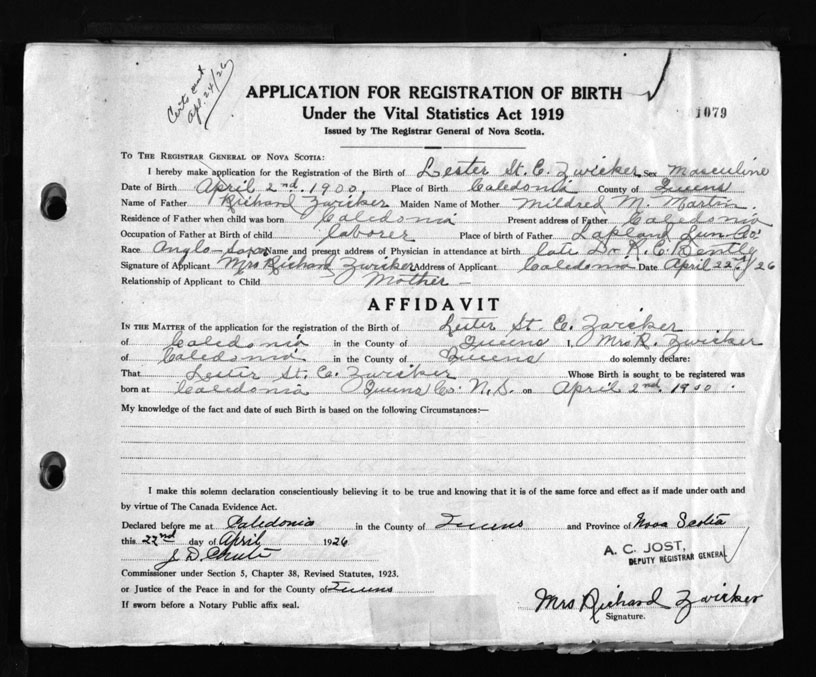 Certs sent
Apl. 24/26
APPLICATION FOR REGISTRATION OF BIRTH
Under the Vital Statistics Act 1919
1079
Issued by The Registrar General of Nova Scotia.
TO THE REGISTRAR GENERAL OF NOVA SCOTIA:
I hereby make application for the Registration of the Birth of Lester St. C. Zwicker Sex Masculine
Date of Birth April 2nd. 1900. Place of Birth Caledonia County of Queens
Name of Father Richard Zwicker Maiden Name of Mother Mildred M. Martin
Residence of Father when child was born Caledonia Present address of Father Caledonia
Occupation of Father at Birth of child laborer Place of birth of Father Lapland Lun. Co.
Race Anglo-Saxon Name and present address of Physician in attendance at birth late Dr. K. C. Bently
Signature of Applicant Mrs Richard Zwicker Address of Applicant Caledonia Date April 22nd/26
Relationship of Applicant to Child Mother -
AFFIDAVIT
IN THE MATTER of the application for the registration of the Birth of Lester St. C. Zwicker
of Caledonia in the County of Queens I, Mrs R. Zwicker
of Caledonia in the County of Queens do solemnly declare:
That Lester St. C. Zwicker Whose Birth is sought to be registered was
born at Caledonia Queens Co. N.S. on April 2nd. 1900.
My knowledge of the fact and date of such Birth is based on the following Circumstances:—
I make this solemn declaration conscientiously believing it to be true and knowing that it is of the same force and effect as if made under oath and
by virtue of The Canada Evidence Act.
Declared before me at Caledonia in the County of Queens and Province of Nova Scotia
this 22nd day of April 1926
J. D. Chute
A. C. JOST,
DEPUTY REGISTRAR GENERAL
Commissioner under Section 5, Chapter 38, Revised Statutes, 1923.
or Justice of the Peace in and for the County of Queens
If sworn before a Notary Public affix seal.
Mrs Richard Zwicker
Signature.